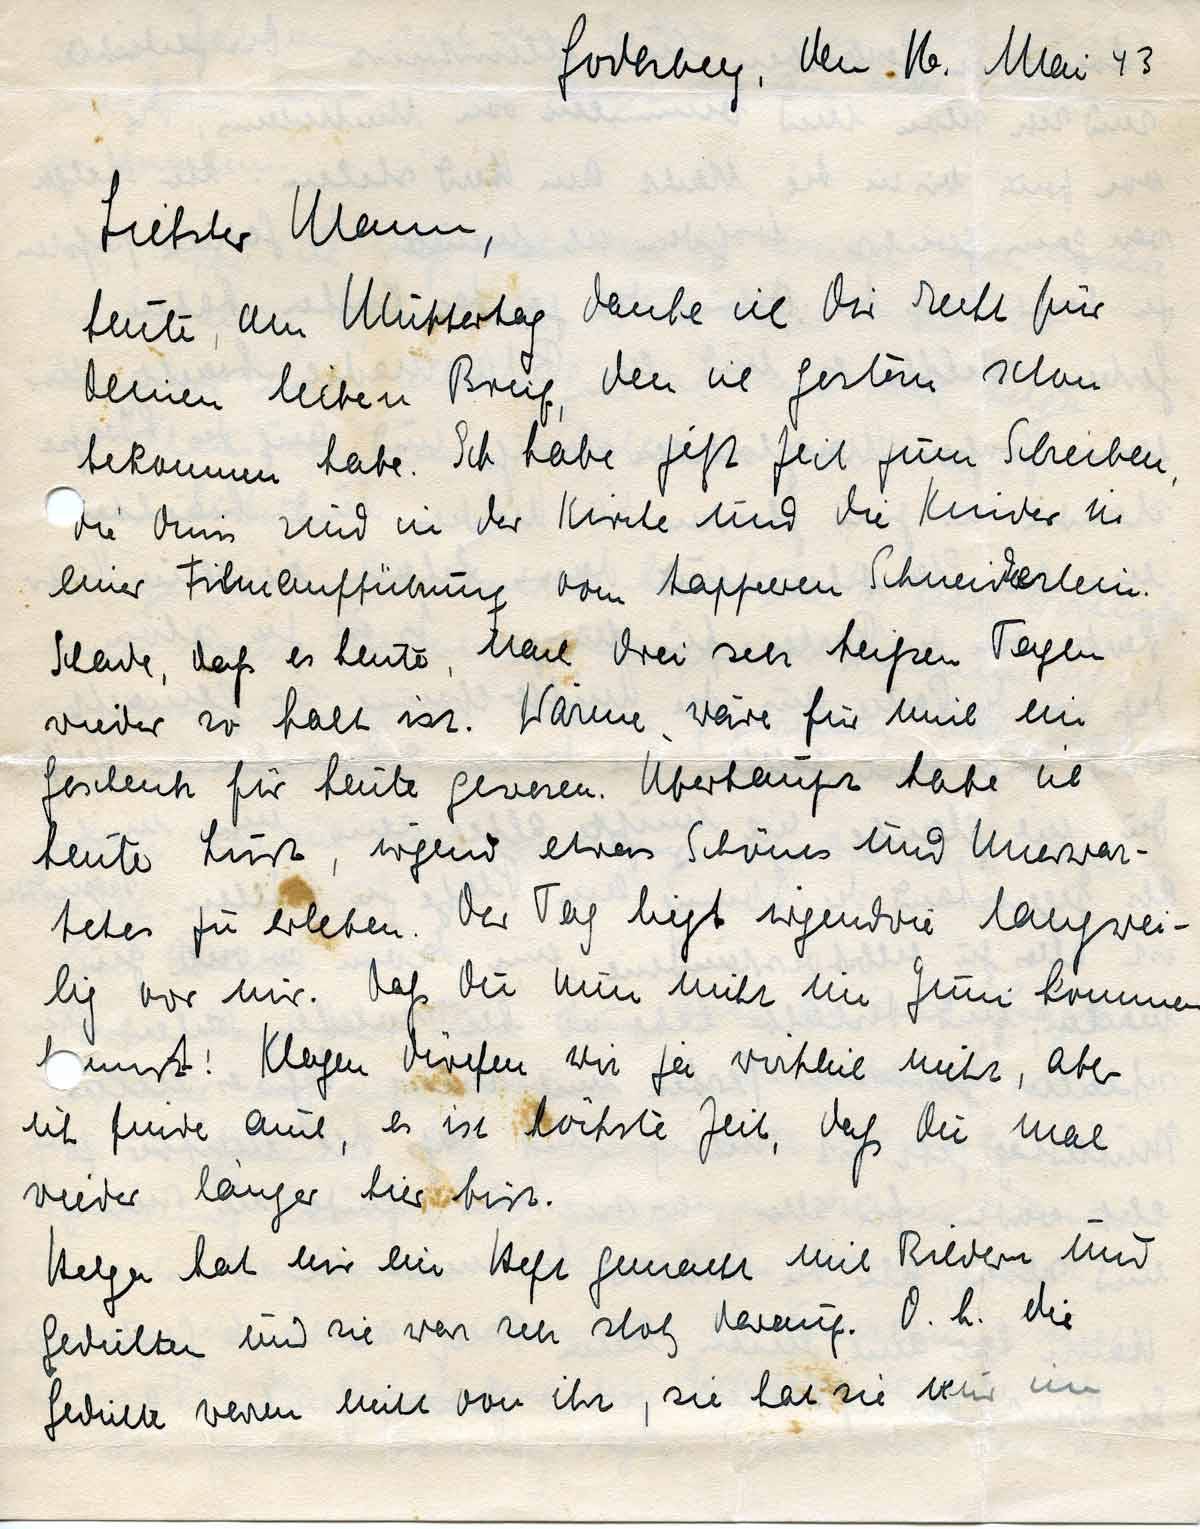 Godesberg, den 16. Mai 43
Liebster Mann,
heute, am Muttertag danke ich Dir recht für
Deinen lieben Brief, den ich gestern schon
bekommen habe. Ich habe jetzt Zeit zum Schreiben,
die Omis sind in der Kirche und die Kinder in
einer Filmaufführung vom tapferen Schneiderlein.
Schade, daß es heute, nach drei sehr heißen Tagen
wieder so kalt ist. Wärme wäre für mich ein
Geschenk für heute gewesen. Überhaupt habe ich
heute Lust, irgend etwas Schönes und Unerwar-
tetes zu erleben. Der Tag liegt irgendwie langwei-
lig vor mir. Daß Du nun nicht im Juni kommen
kannst! Klagen dürfen wir ja wirklich nicht, aber
ich finde auch, es ist höchste Zeit, daß Du mal
wieder länger hier bist.
Helga hat mir ein Heft gemacht mit Bildern und
Gedichten und sie war sehr stolz darauf. D. h. die
Gedichte waren nicht von ihr, sie hat sie nur in